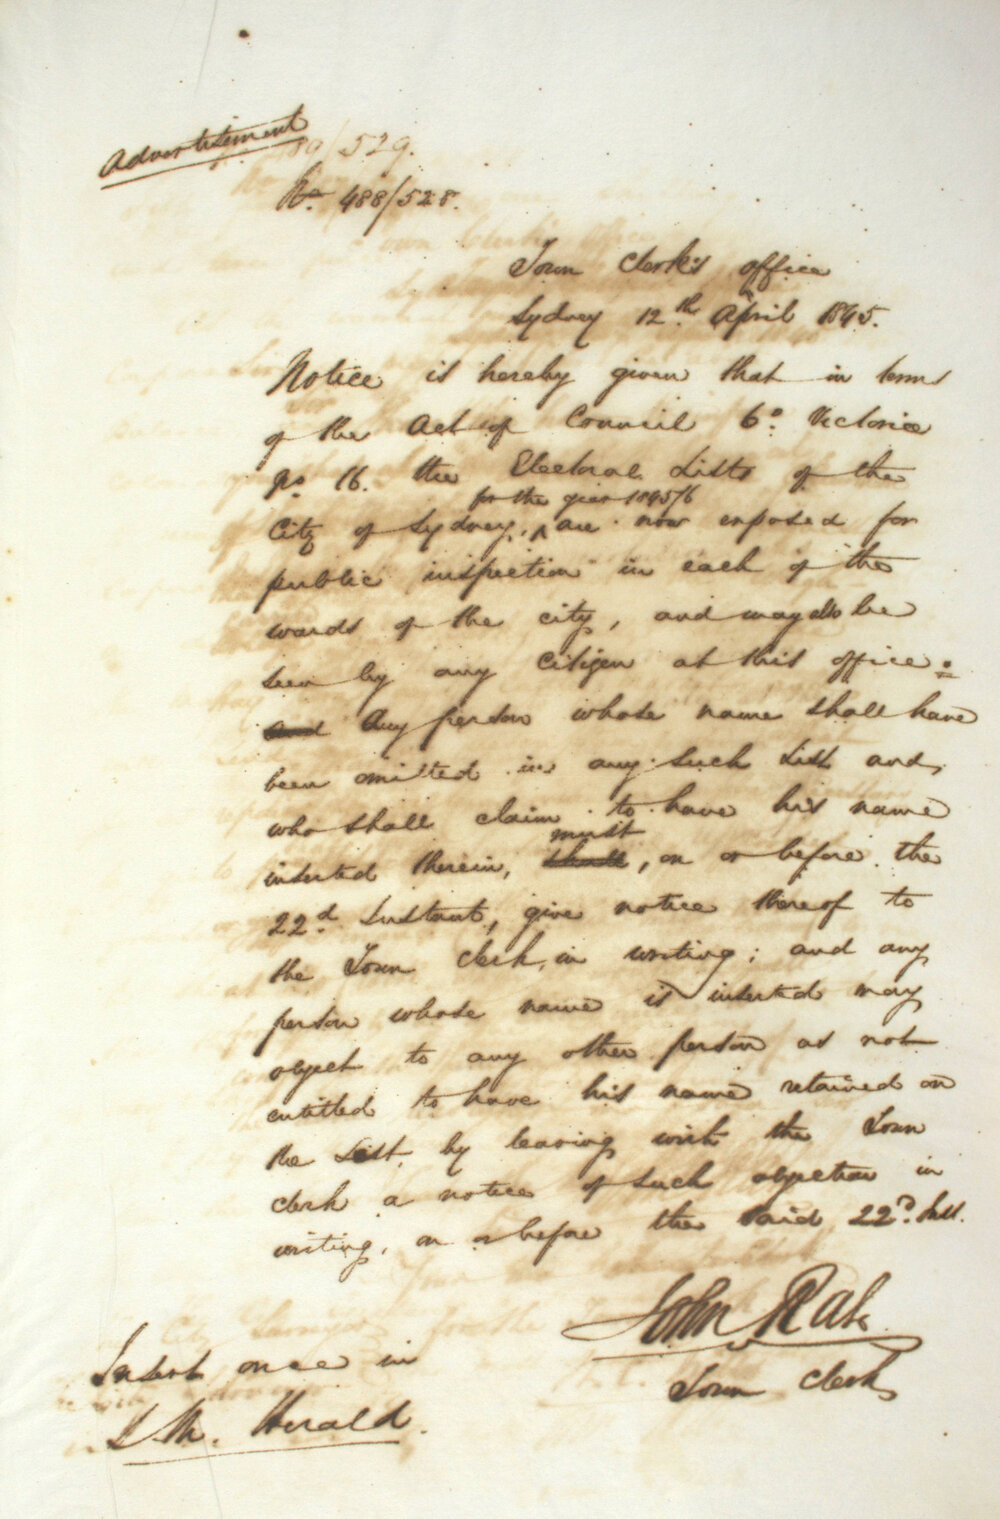 Advertisement
No. 488/528.
Town Clerk's office
Sydney 12th. April 1845.
Notice is hereby given that in terms
of the Act of Council 6o. Victoria
No 16. the Electoral Lists of the
for the year 1845/6
City of Sydney, ^ are now exposed for
public inspection in each of the
wards of the city, and may also be
seen by any Citizen at this office.
and Any person whose name shall have
been omitted in any such List and,
who shall claim to have his name
must
inserted therein, shall, on or before the
22d Instant, give notice thereof to
the Town Clerk, in writing; and any
person whose name is inserted may
object to any other person as not
entitled to have his name retained on
the List, by leaving with the Town
Clerk a notice of such objection in
writing, on or before the said 22d. Inst.
John Rae
Town Clerk
Insert once in
S. M. Herald.